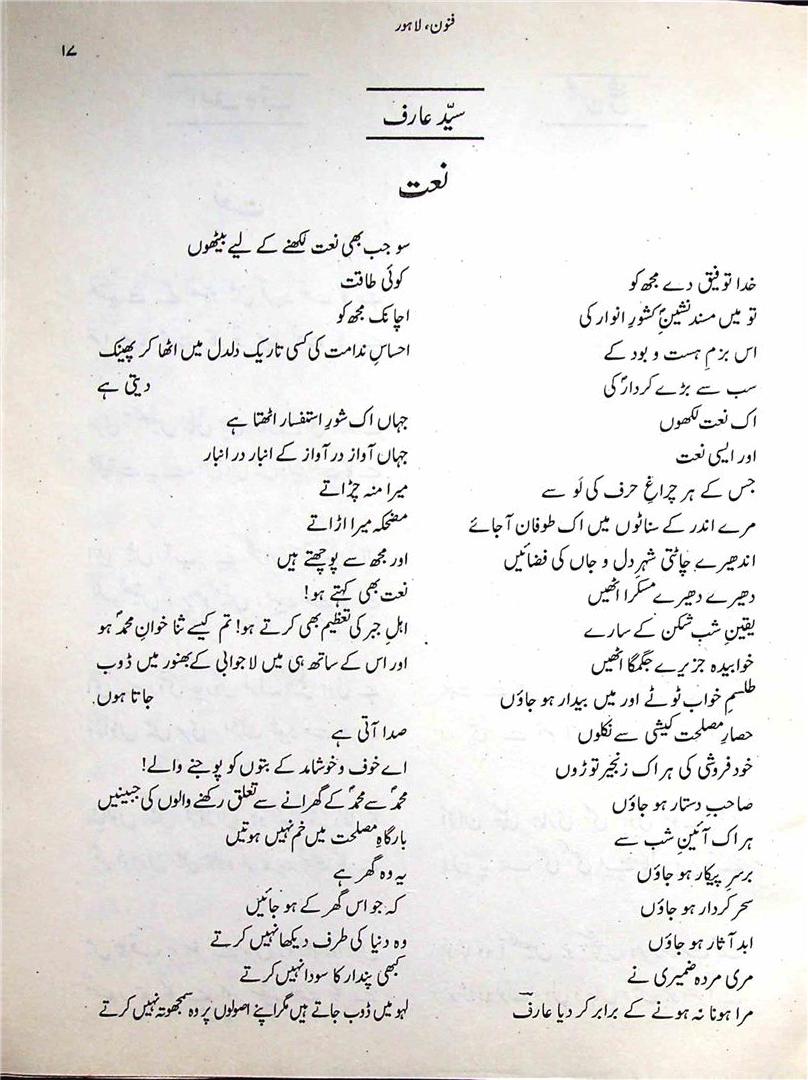 فنون، لاہور
۱۷
سیّد عارف
نعت
خدا توفیق دے مجھ کو
تو میں مسند نشینِؐ کشورِ انوار کی
اس بزمِ ہست و بود کے
سب سے بڑے کردارؐ کی
اک نعت لکھوں
اور ایسی نعت
جس کے ہر چراغِ حرف کی لَو سے
مرے اندر کے سناٹوں میں اک طوفان آ جائے
اندھیرے چاٹتی شہرِ دل و جاں کی فضائیں
دھیرے دھیرے مسکرا اٹھیں
یقینِ شب شکن کے سارے
خوابیدہ جزیرے جگمگا اٹھیں
طلسمِ خواب ٹوٹے اور میں بیدار ہو جاؤں
حصارِ مصلحت کیشی سے نکلوں
خود فروشی کی ہر اک زنجیر توڑوں
صاحبِ دستار ہو جاؤں
ہر اک آئینِ شب سے
برسرِ پیکار ہو جاؤں
سحر کردار ہو جاؤں
ابد آثار ہو جاؤں
مری مردہ ضمیری نے
مرا ہونا نہ ہونے کے برابر کر دیا عارف
سو جب بھی نعت لکھنے کے لیے بیٹھوں
کوئی طاقت
اچانک مجھ کو
احساسِ ندامت کی کسی تاریک دلدل میں اٹھا کر پھینک
دیتی ہے
جہاں اک شورِ استفسار اٹھتا ہے
جہاں آواز در آواز کے انبار در انبار
میرا منہ چڑاتے
مضحکہ میرا اڑاتے
اور مجھ سے پوچھتے ہیں
نعت بھی کہتے ہو!
اہلِ جبر کی تعظیم بھی کرتے ہو! تم کیسے ثنا خوانِ محمدؐ ہو
اور اس کے ساتھ ہی میں لاجوابی کے بھنور میں ڈوب
جاتا ہوں
صدا آتی ہے
اے خوف و خوشامد کے بتوں کو پوجنے والے!
محمدؐ سے محمدؐ کے گھرانے سے تعلق رکھنے والوں کی جبینیں
بارگاہِ مصلحت میں خم نہیں ہوتیں
یہ وہ گھر ہے
کہ جو اس گھر کے ہو جائیں
وہ دنیا کی طرف دیکھا نہیں کرتے
کبھی پندار کا سودا نہیں کرتے
لہو میں ڈوب جاتے ہیں مگر اپنے اصولوں پر وہ سمجھوتہ نہیں کرتے